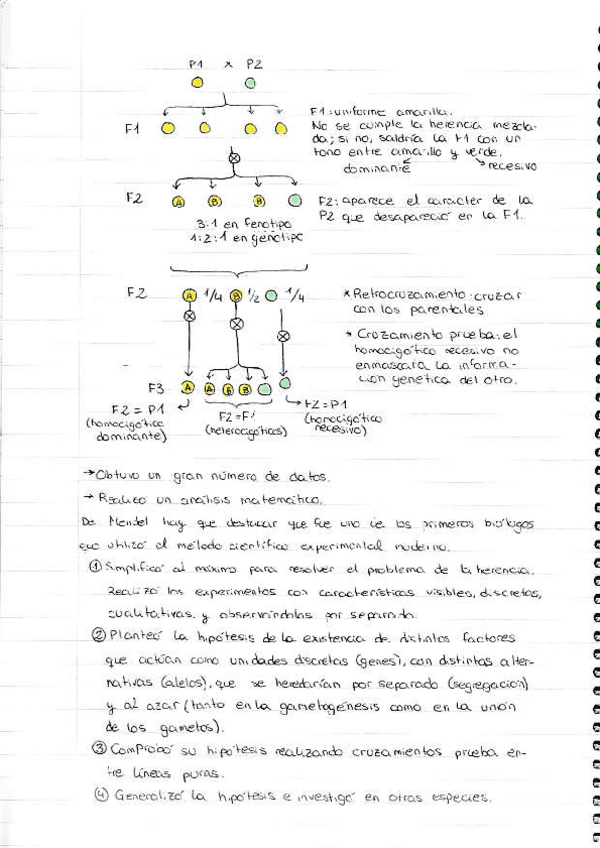 P1 x P2
F1
F1: uniforme amarilla.
No se cumple la herencia mezcla-
da; si no, saldría la F1 con un
tono entre amarillo y verde.
dominante recesivo
F2 A B B
F2: aparece el caracter de la
P2 que desapareció en la F1.
3:1 en fenotipo
1:2:1 en genotipo
F2 A 1/4 B 1/2 1/4
* Retrocruzamiento: cruzar
con los parentales
* Cruzamiento prueba: el
homocigótico recesivo no
enmascara la informa-
ción genética del otro.
F3 A A B B
F2 = P1
(homocigótico
dominante)
F2 = F1
(heterocigóticos)
F2 = P1
(homocigótico
recesivo)
→ Obtuvo un gran número de datos.
→ Realizó un análisis matemático.
De Mendel hay que destacar que fue uno de los primeros biólogos
que utilizó el método científico experimental moderno.
① Simplificó al máximo para resolver el problema de la herencia.
Realizó los experimentos con características visibles, discretas,
cualitativas y observándolas por separado.
② Planteó la hipótesis de la existencia de distintos factores
que actúan como unidades discretas (genes), con distintas alter-
nativas (alelos), que se heredarían por separado (segregación)
y al azar (tanto en la gametogénesis como en la unión
de los gametos).
③ Comprobó su hipótesis realizando cruzamientos prueba en-
tre líneas puras.
④ Generalizó la hipótesis e investigó en otras especies.